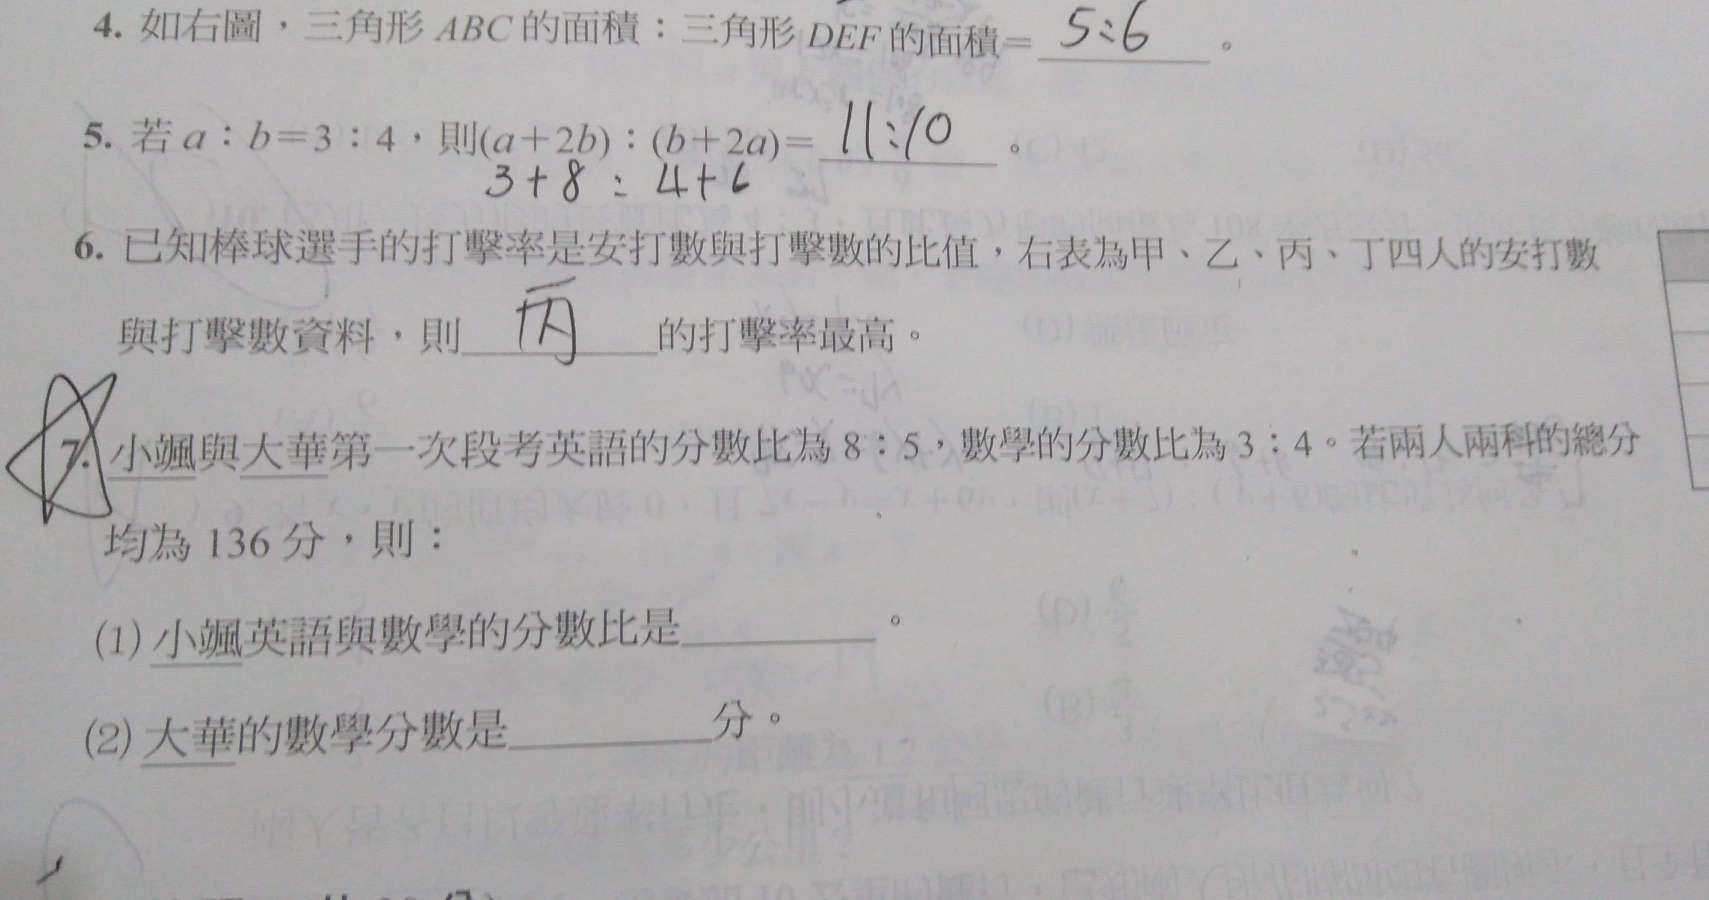 4. 如右圖，三角形 ABC 的面積：三角形 DEF 的面積＝ 5:6 。
5. 若 a：b＝3：4，則(a＋2b)：(b＋2a)＝ 11:10 。
3+8 : 4+6
6. 已知棒球選手的打擊率是安打數與打擊數的比值，右表為甲、乙、丙、丁四人的安打數
與打擊數資料，則 丙 的打擊率最高。
7. 小颯與大華第一次段考英語的分數比為 8：5，數學的分數比為 3：4。若兩人兩科的總分
均為 136 分，則：
(1) 小颯英語與數學的分數比是________。
(2) 大華的數學分數是________分。